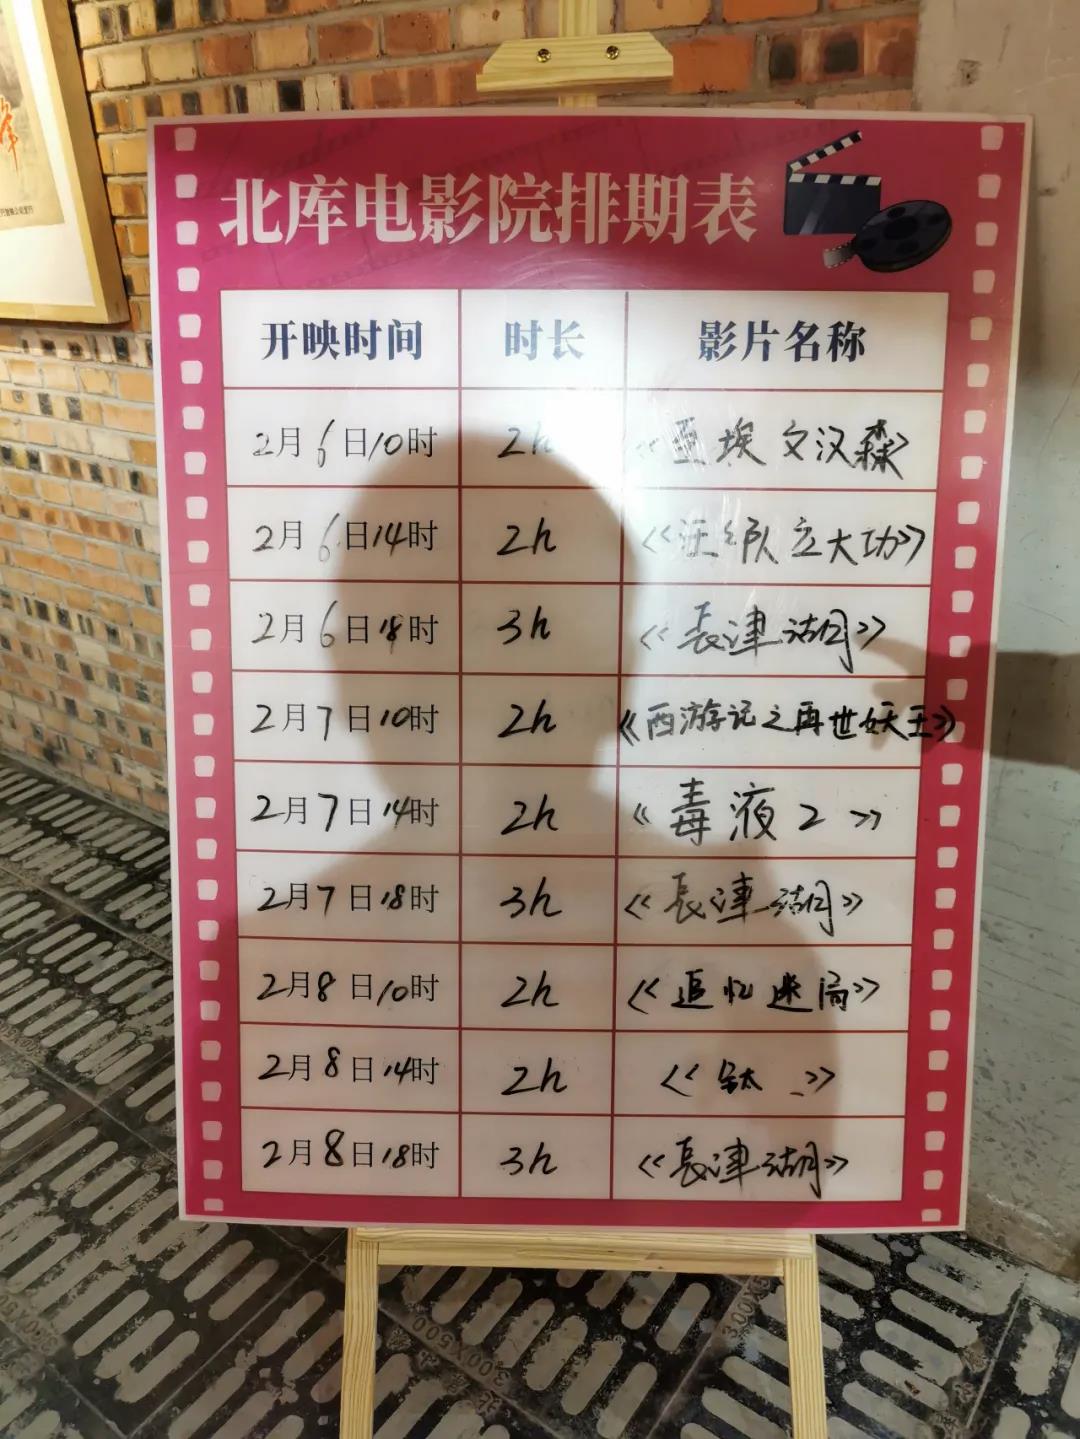 北库电影院排期表
开映时间 时长 影片名称
2月6日10时 2h 《亚埃文汉森》
2月6日14时 2h 《汪纱队立大功》
2月6日18时 3h 《長津湖》
2月7日10时 2h 《西游记之再世妖王》
2月7日14时 2h 《毒液2》
2月7日18时 3h 《長津湖》
2月8日10时 2h 《追忆迷局》
2月8日14时 2h 《钛》
2月8日18时 3h 《長津湖》
300X500
3.00X500
3.00X5